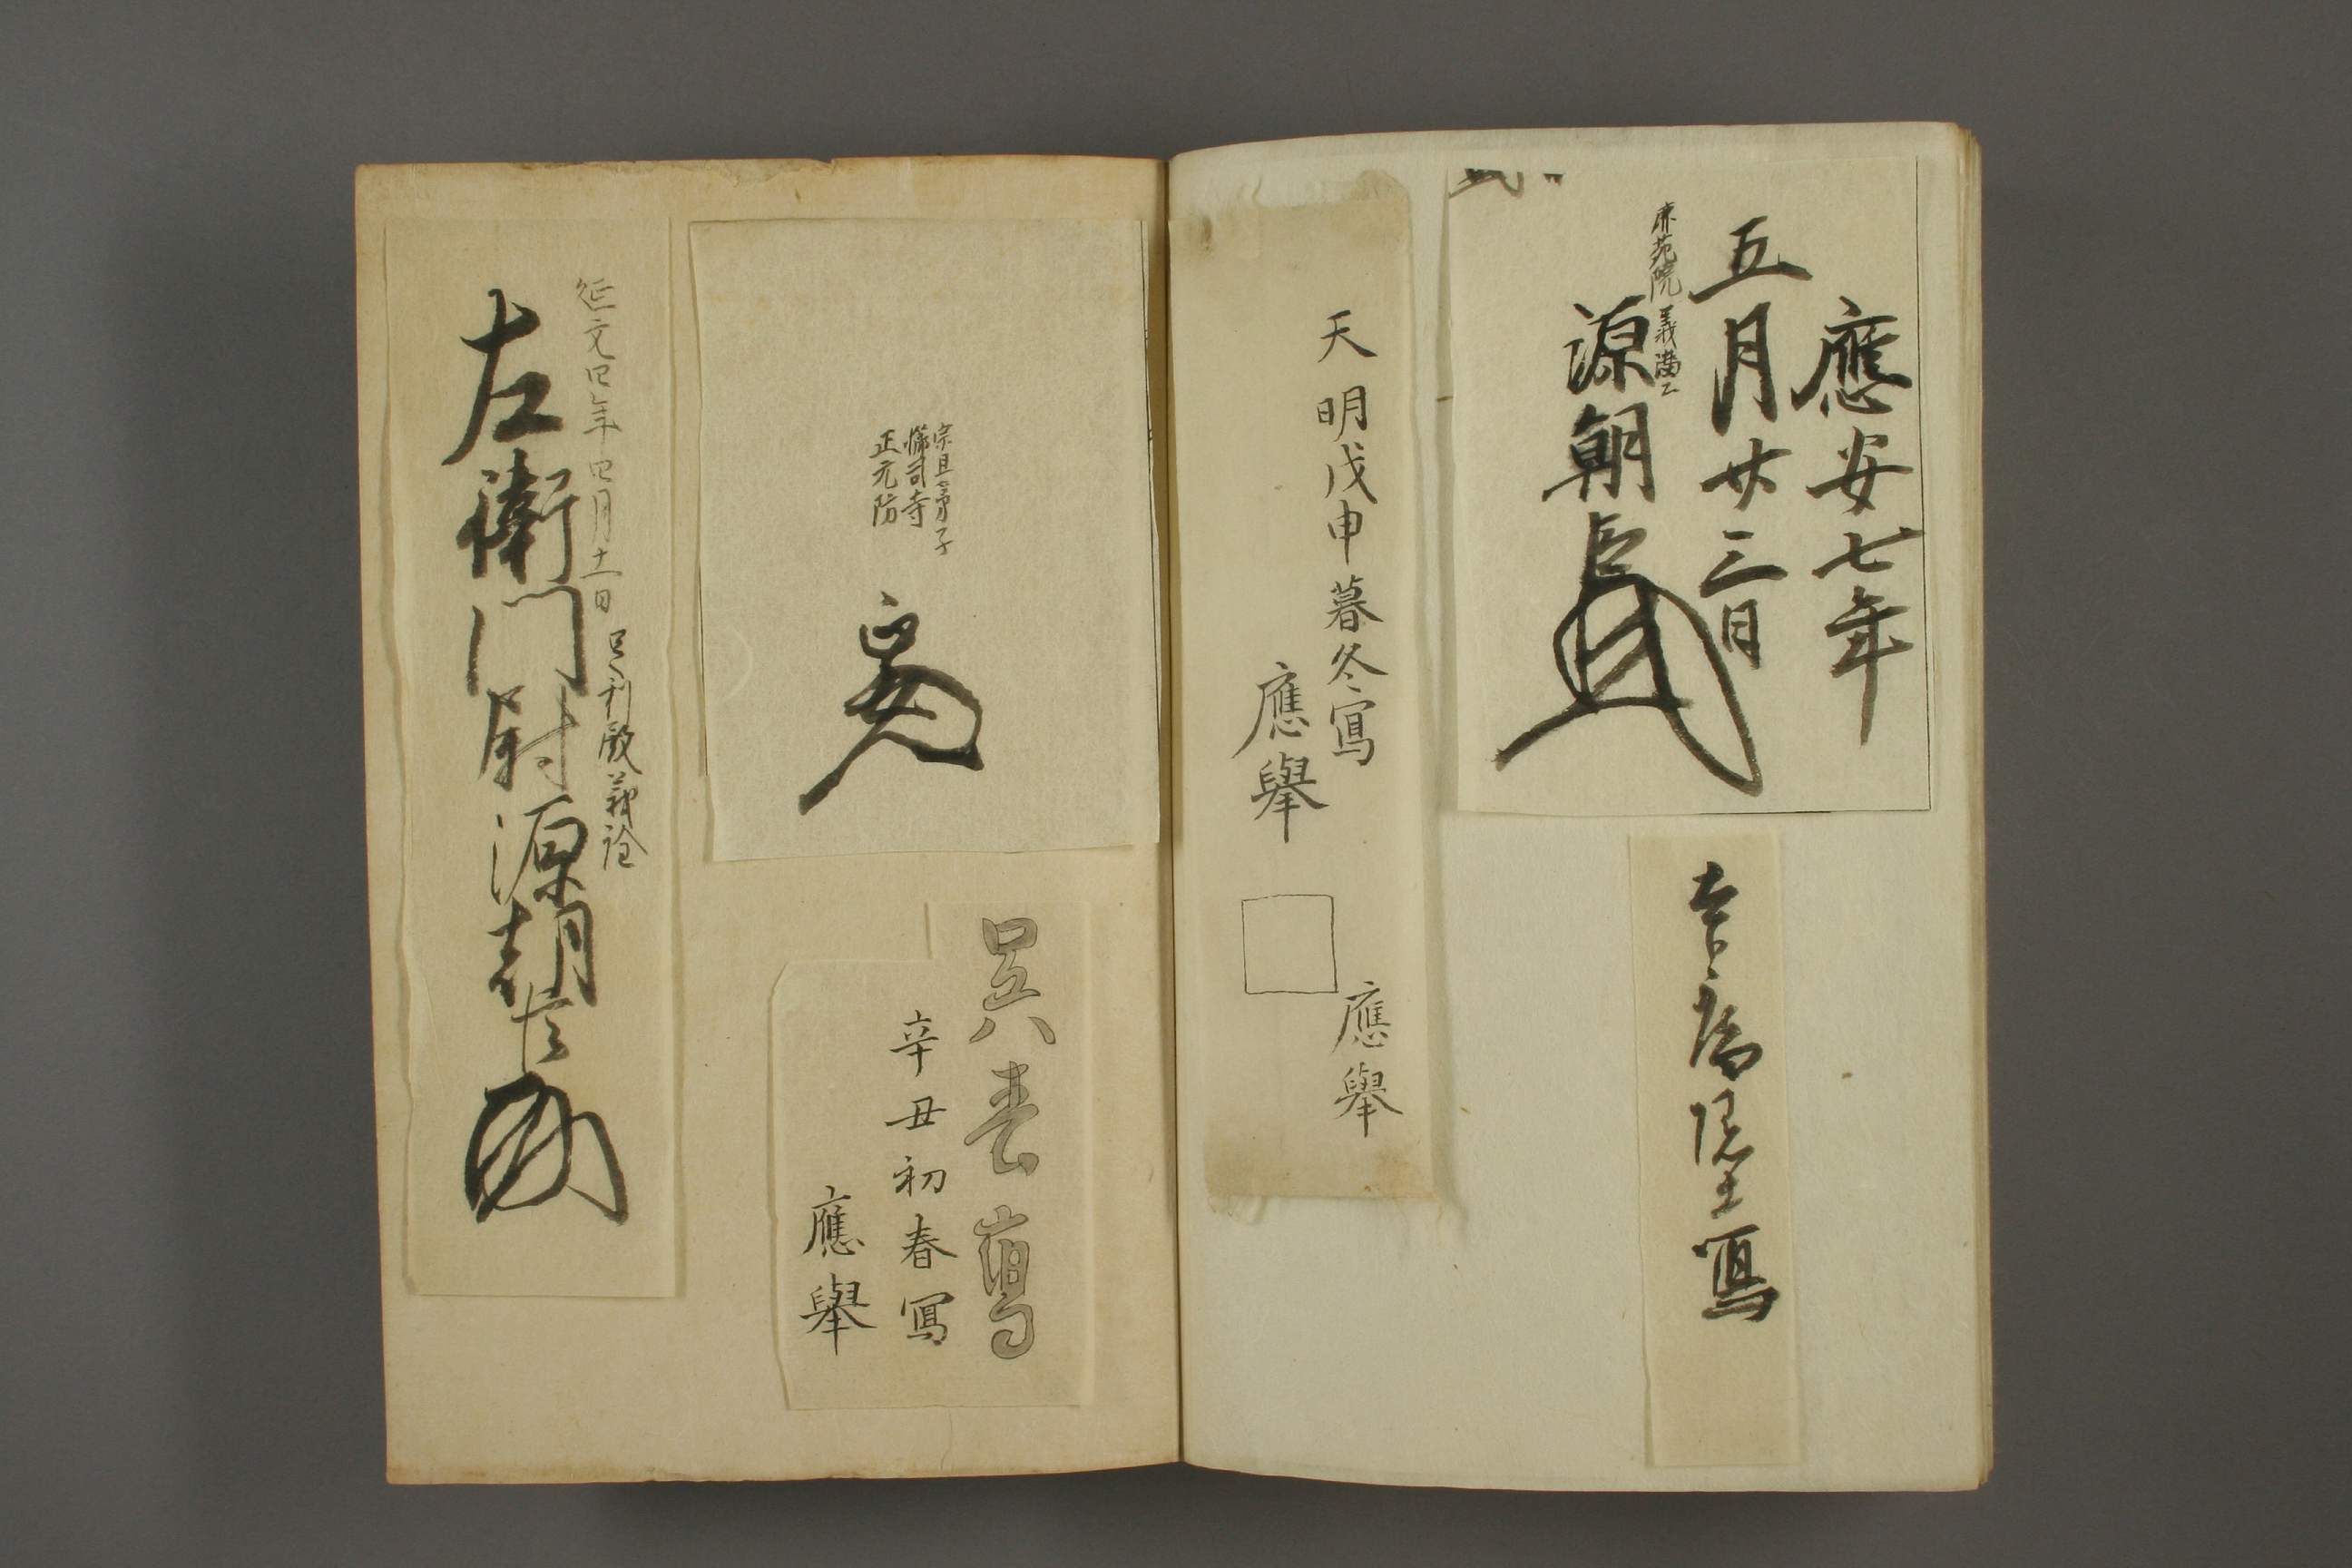 應安七年
五月廿三日
鹿苑院義満公
源朝臣
寫
天明戊申暮冬寫
應舉
應舉
宗旦弟子
懐司寺
正元防
呉春寫
辛丑初春寫
應舉
延文四年四月十一日
足利殿義詮
左衛門尉源朝臣